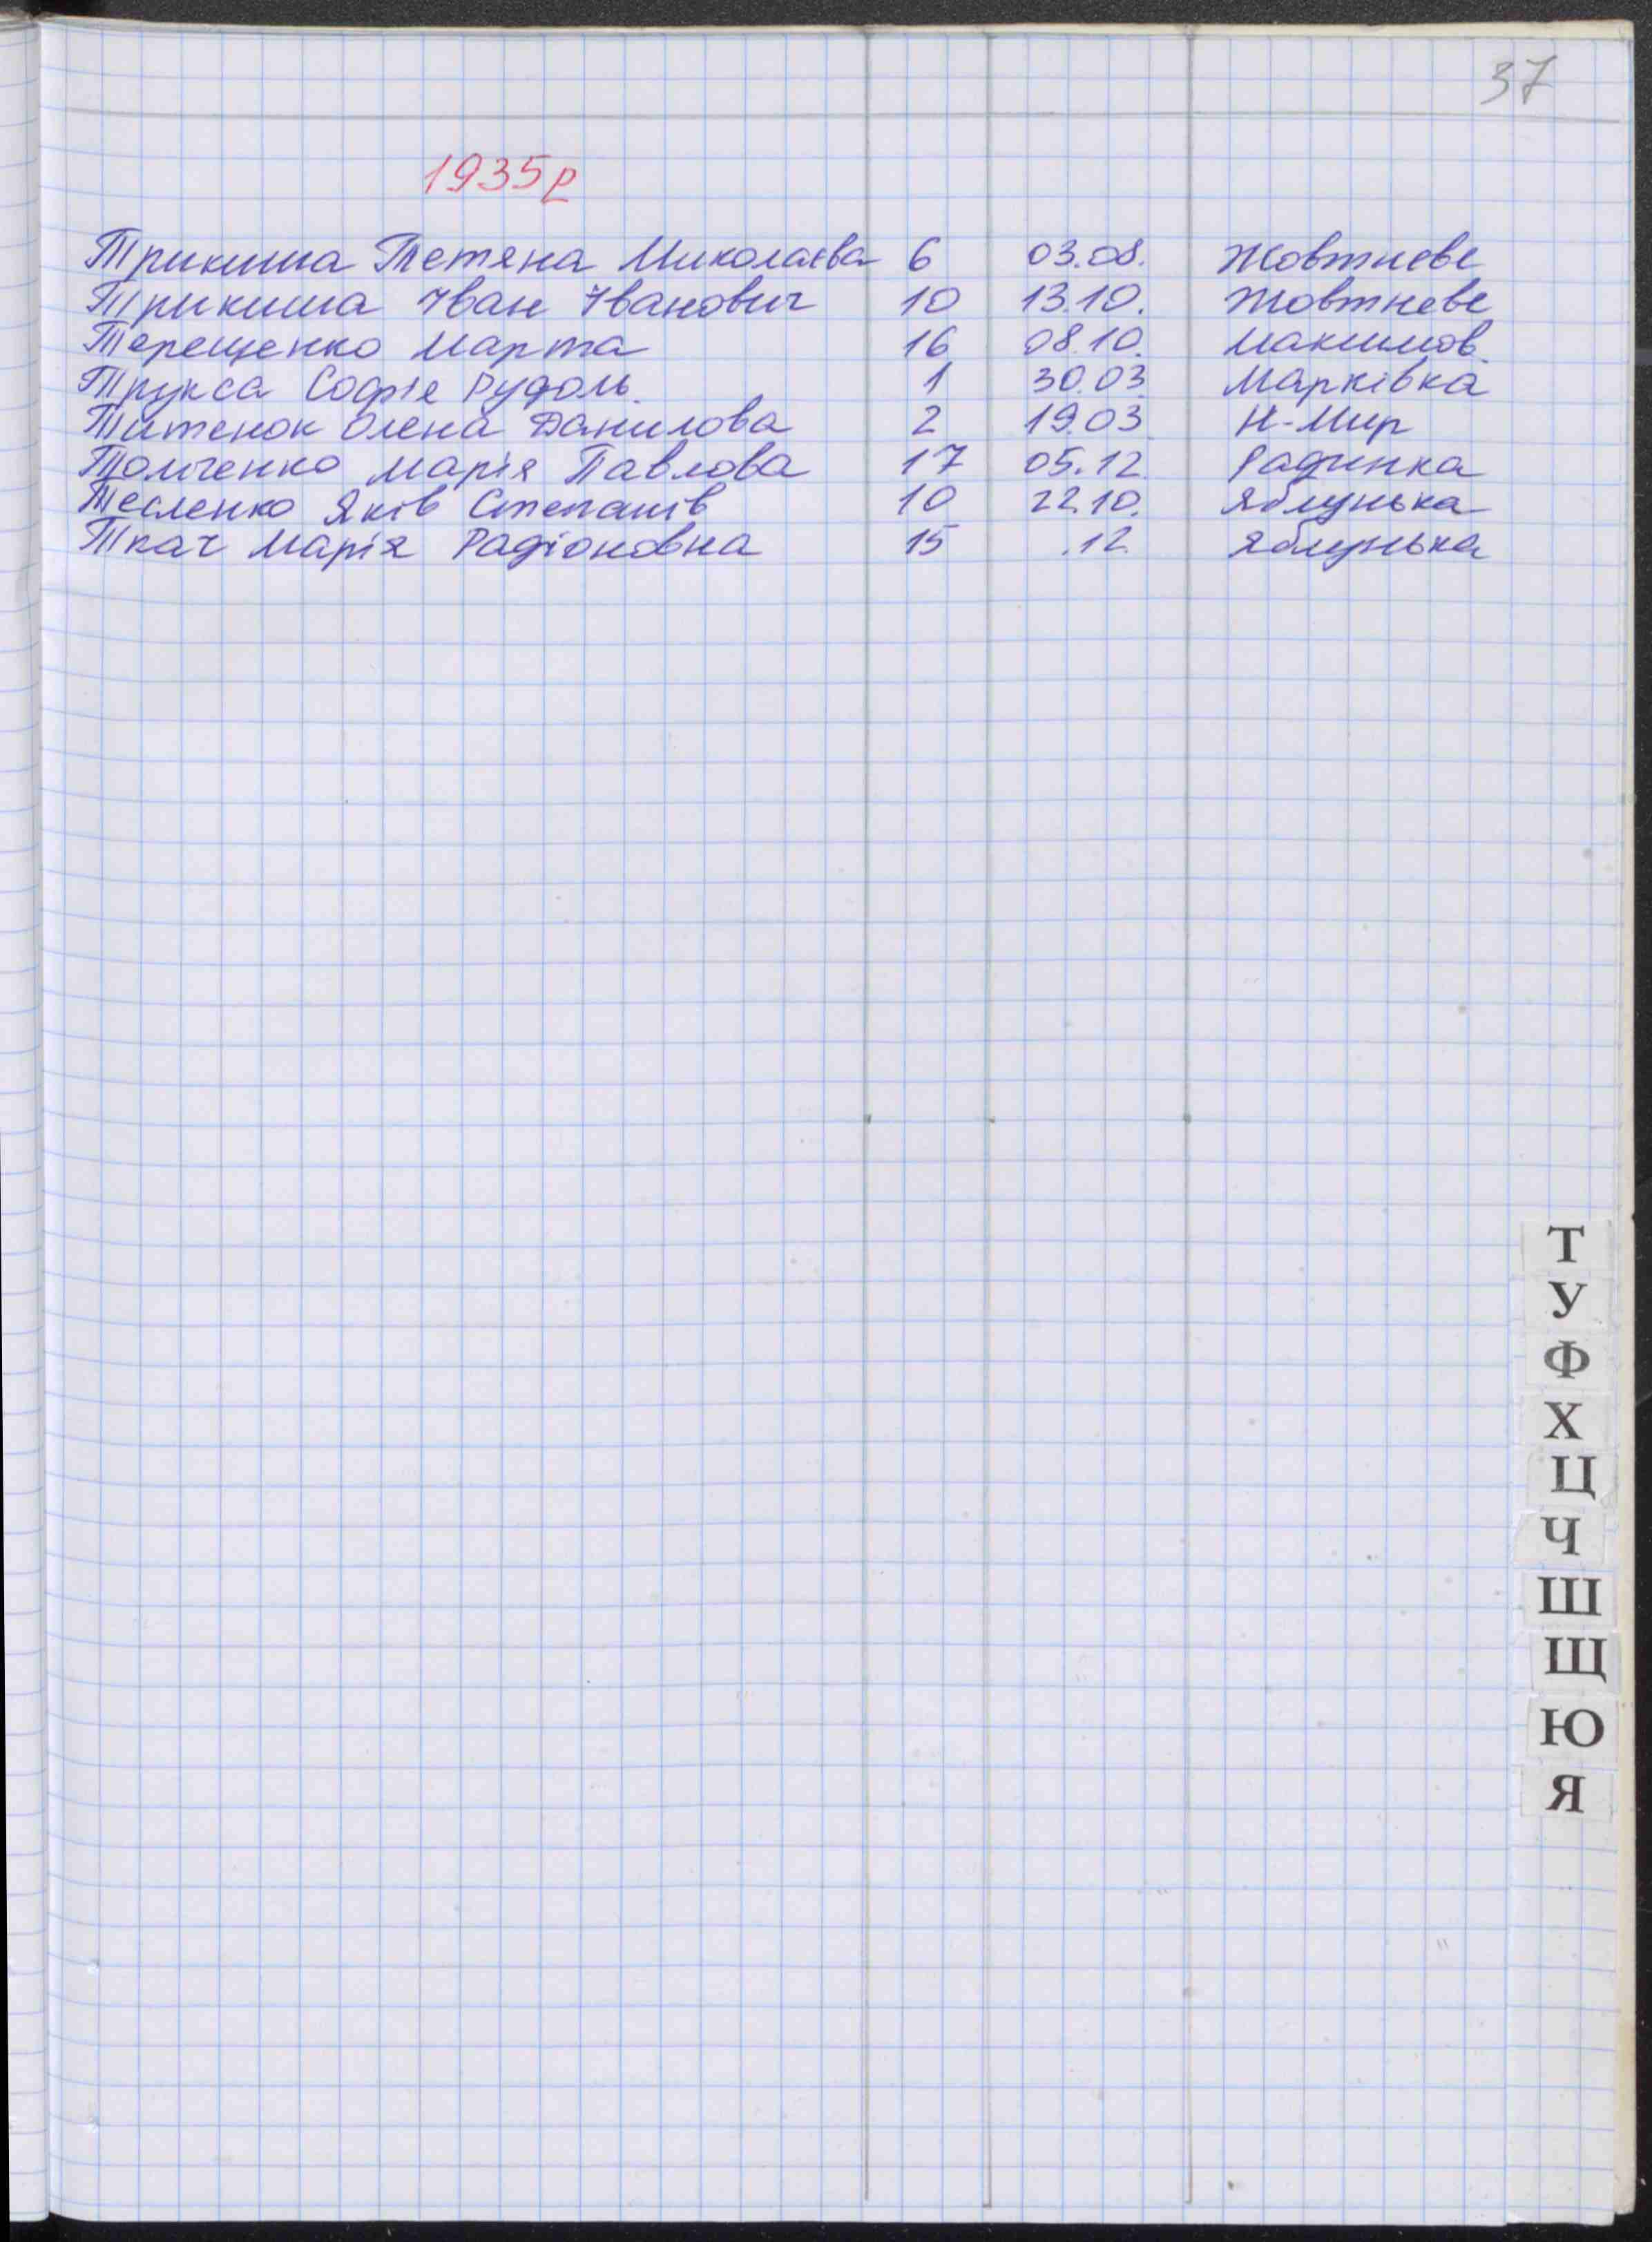 37
1935р
Трикиша Тетяна Миколаєва 6 03.08. Жовтневе
Трикиша Іван Іванович 10 13.10. Жовтневе
Терещенко Марта 16 08.10. Максимов.
Трукса Софія Рудоль. 1 30.03. Марківка
Титенок Олена Данилова 2 19.03 Н-Мир
Толченко Марія Павлова 17 05.12. Радинка
Тесленко Яків Степанів 10 22.10. Яблунька
Ткач Марія Радіоновна 15 .12. Яблунька
Т
У
Ф
Х
Ц
Ч
Ш
Щ
Ю
Я